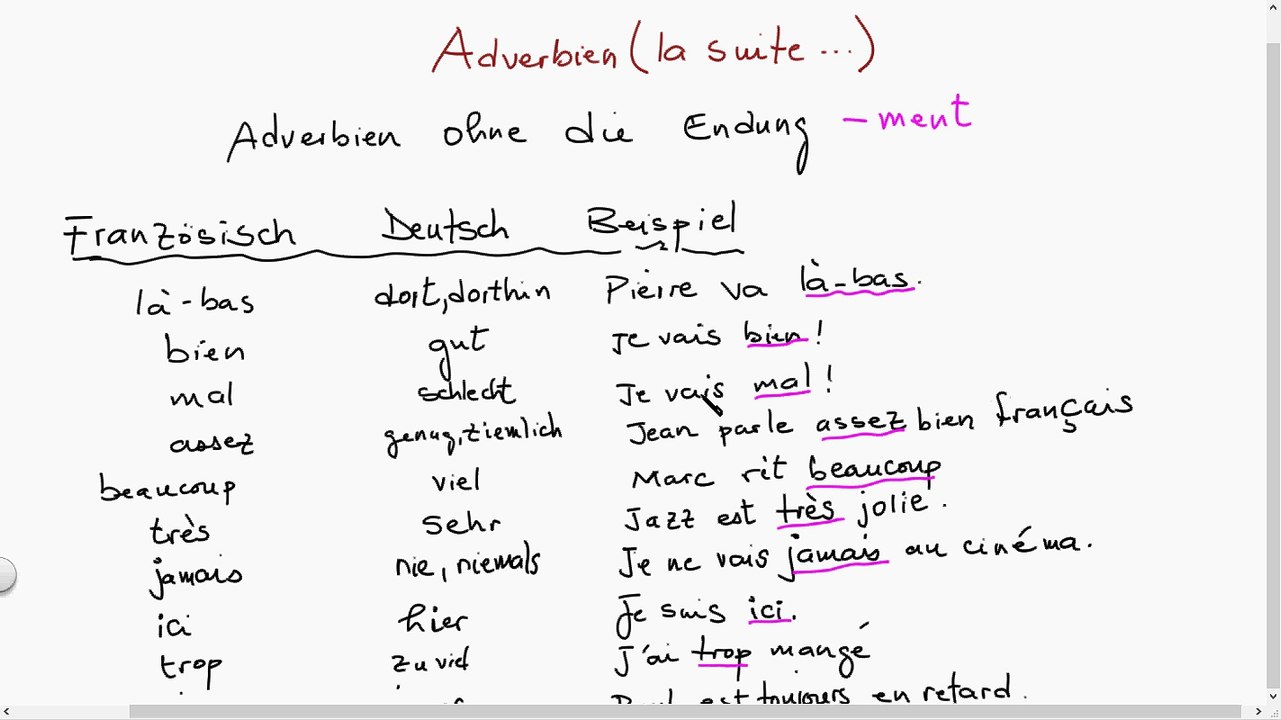 Adverbien (la suite ...)
Adverbien ohne die Endung -ment
Französisch Deutsch Beispiel
là-bas dort, dorthin Pierre va là-bas.
bien gut Je vais bien !
mal schlecht Je vais mal !
assez genug, ziemlich Jean parle assez bien français
beaucoup viel Marc rit beaucoup
très sehr Jazz est très jolie.
jamais nie, niemals Je ne vais jamais au cinéma.
ici hier Je suis ici.
trop zu viel J'ai trop mangé
est toujours en retard.